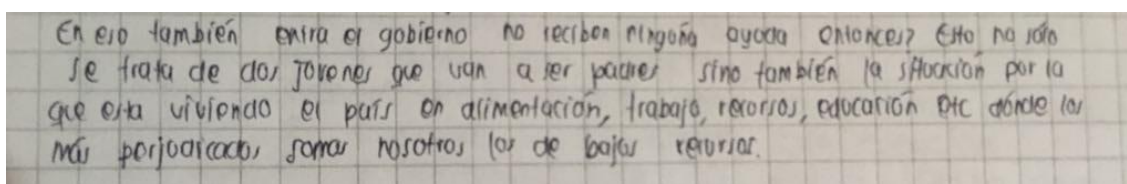 En eso también entra el gobierno no reciben ninguna ayuda entonces? Esto no sólo
se trata de dos jovenes que van a ser padres sino también la situación por la
que esta viviendo el país en alimentación, trabajo, recursos, educación etc dónde los
más perjudicados somos nosotros los de bajos recursos.